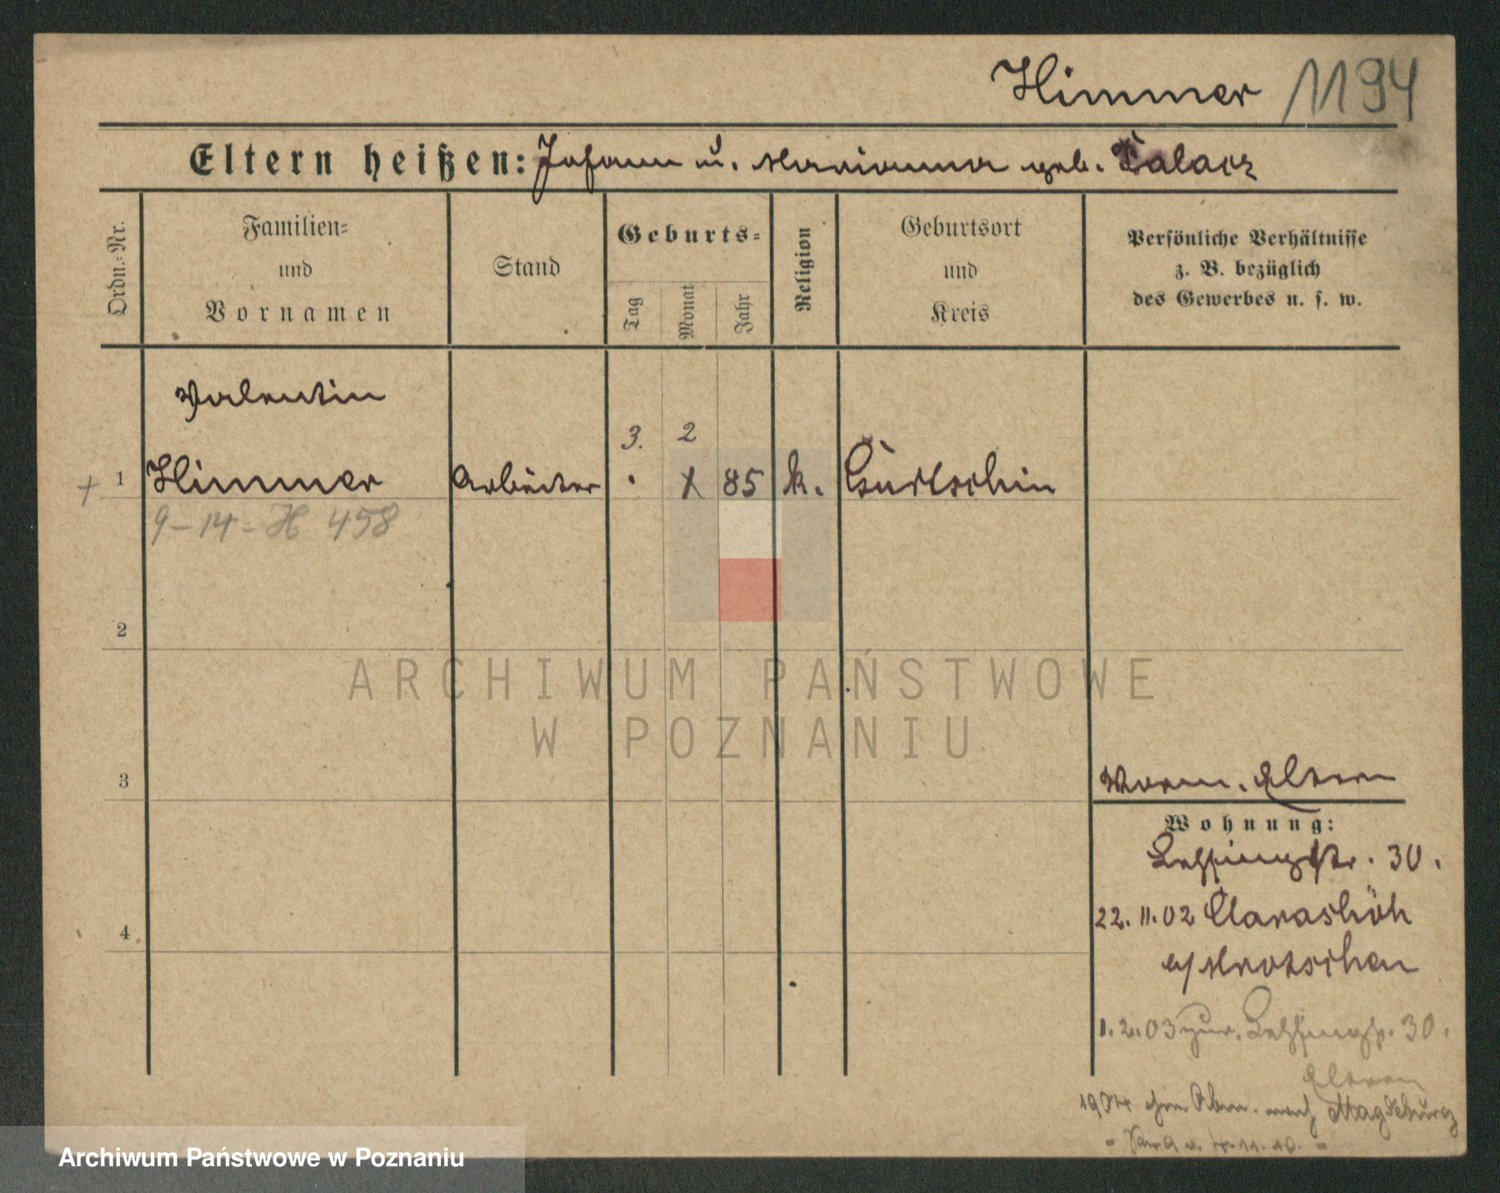 Himmer 1194
Eltern heißen: Johann u. Marianna geb. Talarz
Ordn.-Nr.
Familien-
und
Vornamen
Stand
Geburts-
Tag
Monat
Jahr
Religion
Geburtsort
und
Kreis
Persönliche Verhältnisse
z. B. bezüglich
des Gewerbes u. s. w.
Valentin
3. 2
1 Himmer Arbeiter 85 k. Gurtschin
9-14-H 458
2
ARCHIWUM PAŃSTWOWE
W POZNANIU
3
Eltern
Wohnung:
Lessingstr. 30.
22.11.02 Clarashöh
4
b/ Mrotschen
1.2.03 zur. Lessingstr. 30.
Eltern
1904 ohne Abm. nach Magdeburg
Archiwum Państwowe w Poznaniu